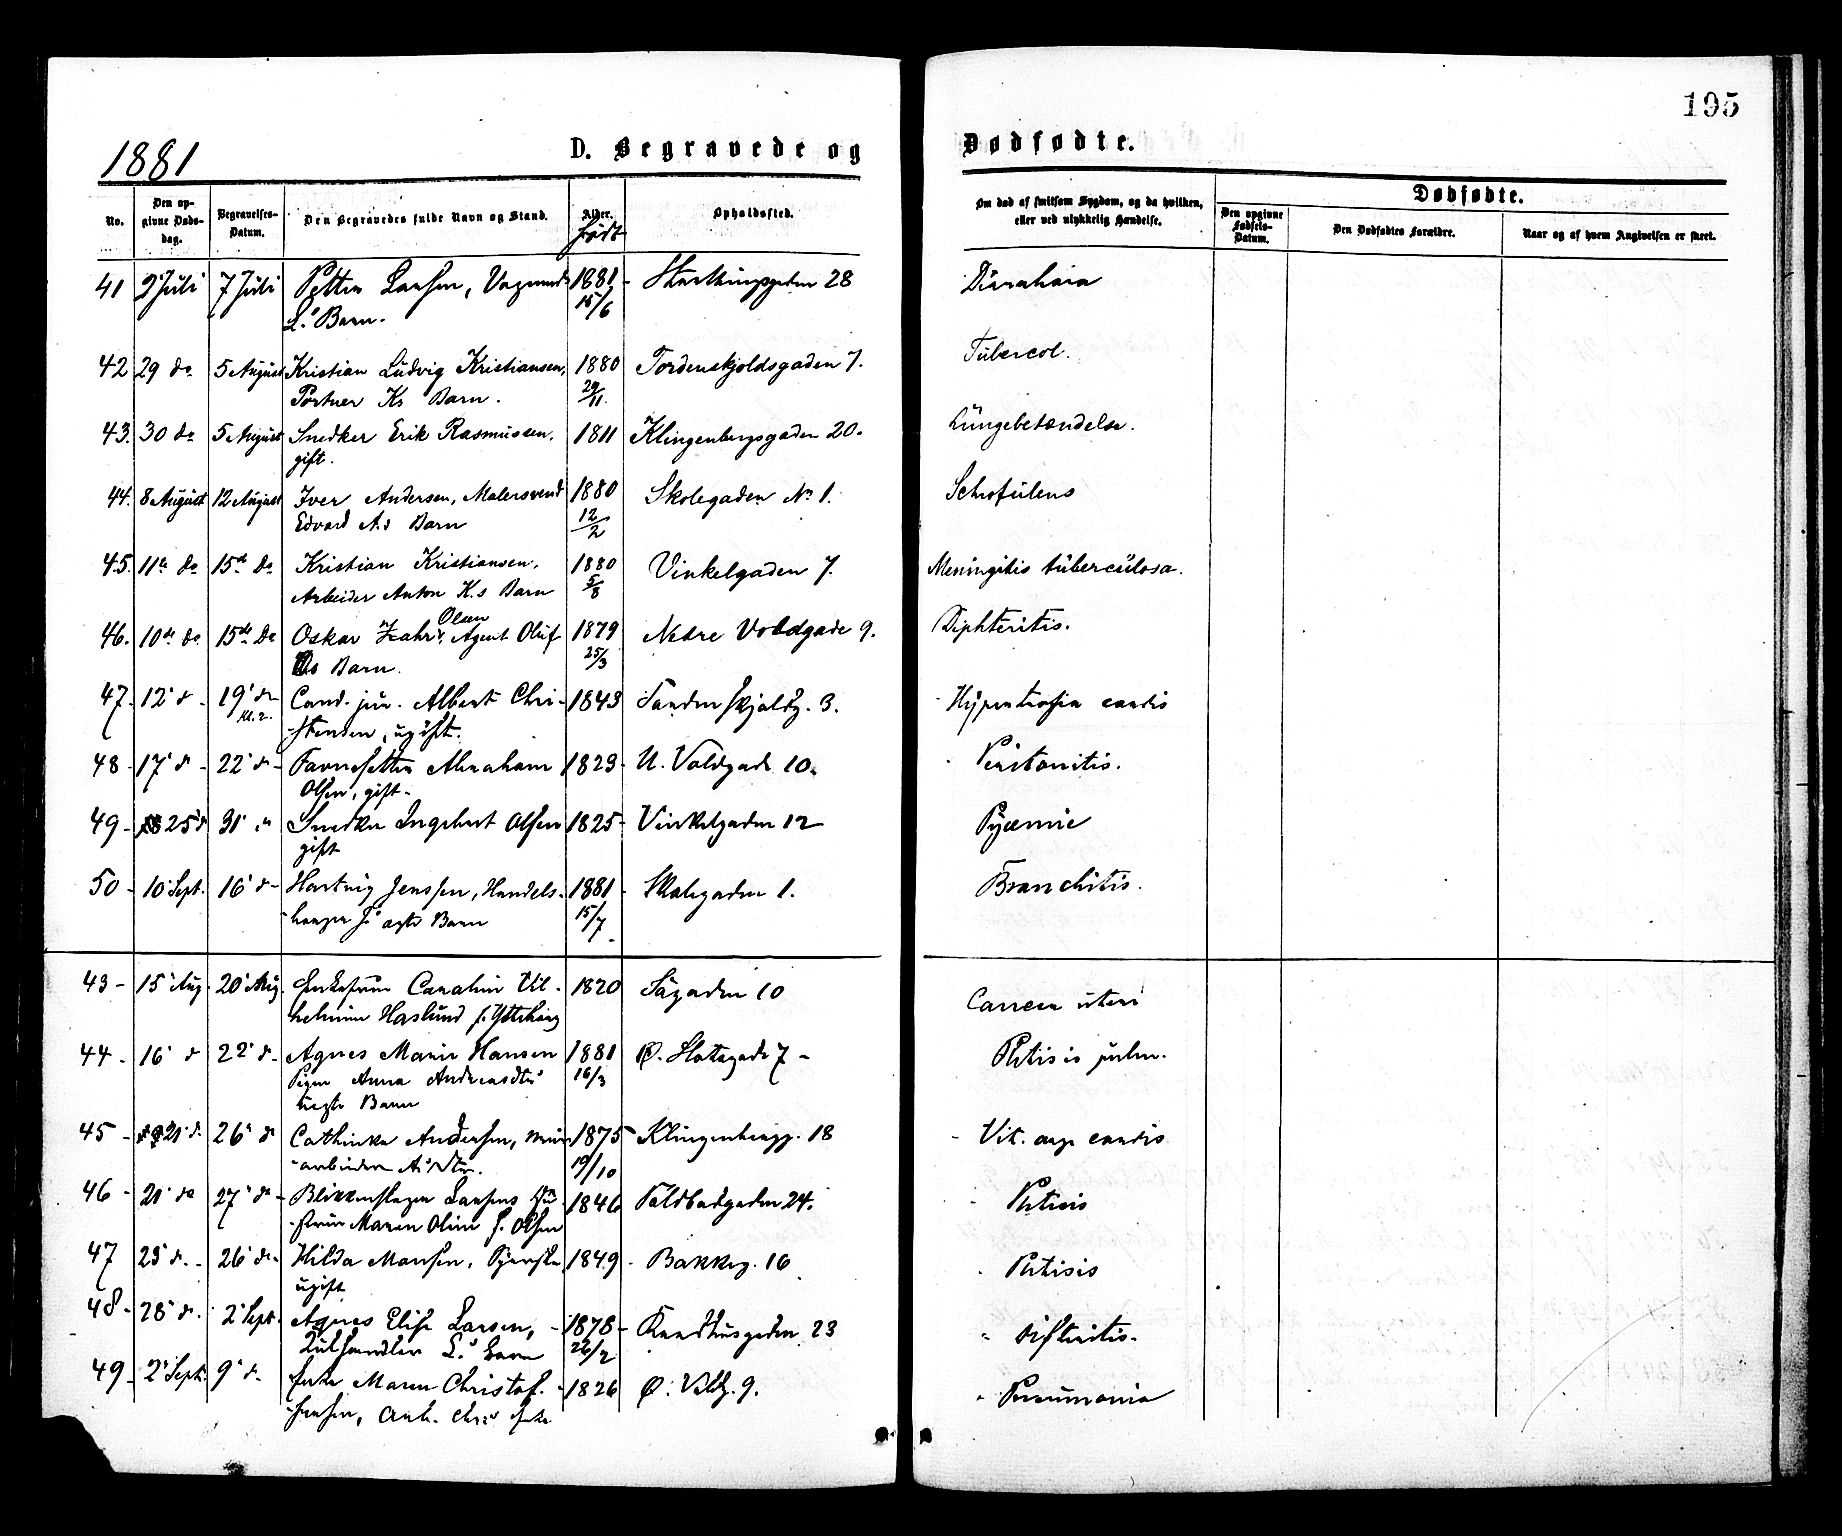 195
1881
D. Begravede og Dødfødte.
No.
Den opgivne Dødsdag.
Begravelses-Datum.
Den Begravedes fulde Navn og Stand.
Alder.
født
Opholdssted.
Om død af smitsom Sygdom, og da hvilken, eller ved ulykkelig Hændelse.
Dødfødte.
Den opgivne Fødsels-Datum.
Den Dødfødtes Forældre.
Naar og af hvem Angivelsen er skeet.
41 2 Juli 7 Juli Petter Larsen, 1881 28 Diarahoia
L.s Barn. 15/6
42 29 do 5 August Kristian Ludvig Kristiansen, 1880 Tordenskjoldsgaden 7. Tubercol.
Portner Ks Barn. 29/11.
43. 30 do 5 August Snedker Erik Rasmussen, 1811 Klingenbergsgaden 20. Lungebetændelse.
gift.
44. 8 August 12 August Iver Andersen, Malersvend 1880 Skolegaden No 1. Schrofuløns
Edvard A.s Barn 12/2
45. 11te do 15de do Kristian Kristiansen, 1880 Vinkelgaden 7. Meningitis tuberculosa.
Arbeider Anton K.s Barn 5/8
Olsen
46. 10de do 15de do Oskar Agent Oluf 1879 Nedre Voldgade 9. Diphteritis.
Os Barn. 25/3
47. 12' d 19' do Cand. jur. Albert Chri- 1843 Tordenskjoldg. 3. Hypertrofia cordis
Kl. 2. stensen, ugift.
48 - 17' d - 22' d - Abraham 1829 - N. Voldgade 10. Peritonitis.
Olsen, gift -
49 - 25' d 31' Snedker Ingebret Olsen 1825 - Vinkelgaden 12 Pyæmie
gift
50 - 10' Sept. 16' d - Hartvig Jenssen, Handels- 1881 - Skolegaden 1. Bronchitis.
J.s ægte Barn 15/7
43 - 15' Aug. 20' Aug. Caroline Vil- 1820 Søgaden 10 Cancer uteri
helmine Haslund f.
44 - 16' d 22' d - Agnes Marie Hansen 1881 Ø. Slotsgade 7 - Phtisis pulm.
Pigen Anna 16/3
uægte Barn
45 - 21' d. 26' d Cathinka Andersen, 1875 - Klingenbergg. 18 Vit. org. cordis
arbeider A.s Dtr. 19/10
46 - 21' do 27' do Blikkenslager Larsens Hu- 1846 Voldbadgaden 24. Phtisis
strue Maren Oline f. Olsen
47 23' d. - 26' do - Hilda Monsen, 1849 - Bakkeg. 16 Phtisis
ugift
48 - 28' d. 2' Sept. Agnes Elise Larsen, - 1878 - 23 Difteritis.
L.s Barn 26/2
49 - 2' Sept. 9' d. Enke Maren Christof- 1826 Ø. Voldg. 9. Pneumonia
fersen,